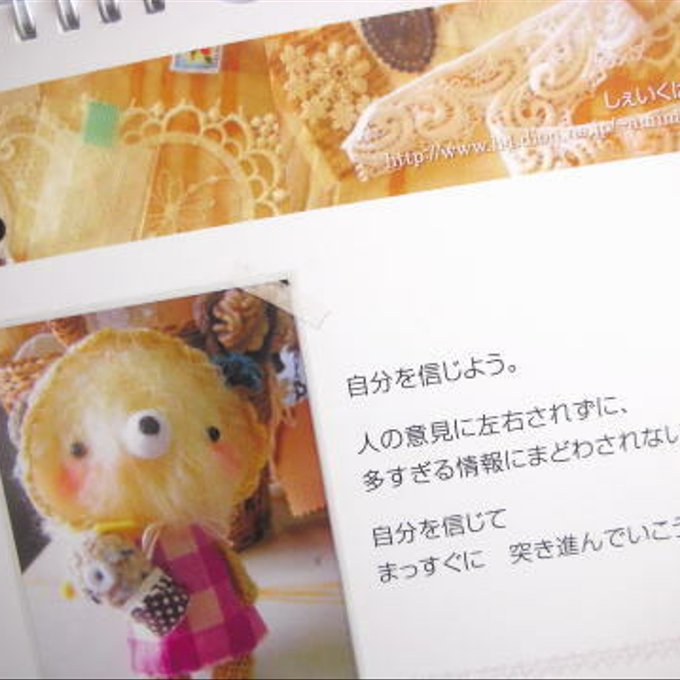 しぇいくは
自分を信じよう。
人の意見に左右されずに、
多すぎる情報にまどわされない
自分を信じて
まっすぐに 突き進んでいこう